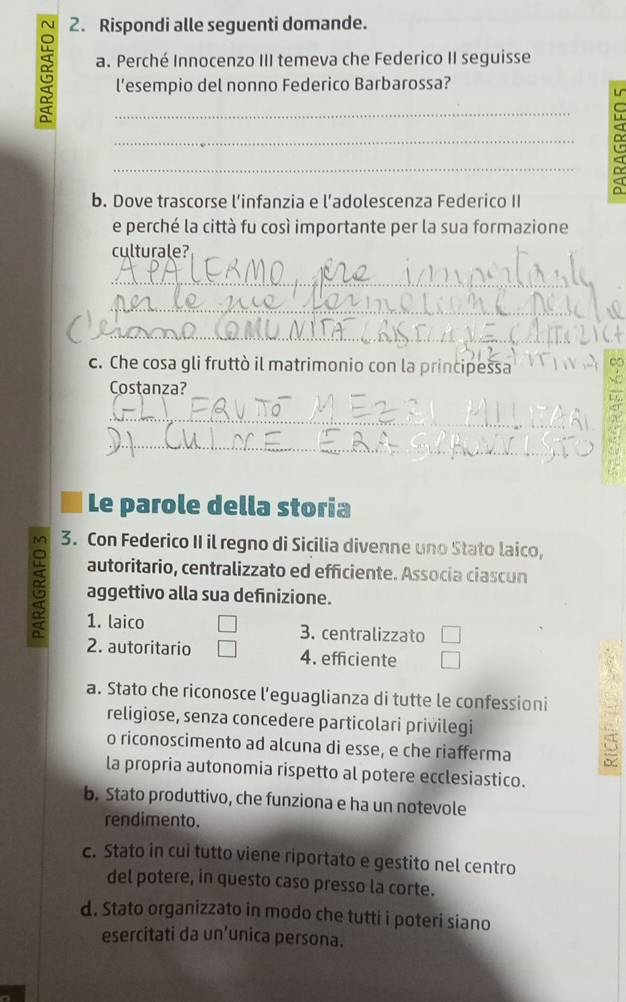 PARAGRAFO 2
2. Rispondi alle seguenti domande.
a. Perché Innocenzo III temeva che Federico II seguisse
l'esempio del nonno Federico Barbarossa?
PARAGRAFO 5
b. Dove trascorse l'infanzia e l'adolescenza Federico II
e perché la città fu così importante per la sua formazione
culturale?
A PALERMO, importante
per le sue formazione
C'erano COMUNITÀ CRISTIANE
c. Che cosa gli fruttò il matrimonio con la principessa
Costanza?
GLI FRUTTÒ MEZZI MILITARI
DI CUI NE ERA SPROVVISTO
PARAGRAFI 6-8
Le parole della storia
PARAGRAFO 3
3. Con Federico II il regno di Sicilia divenne uno Stato laico,
autoritario, centralizzato ed efficiente. Associa ciascun
aggettivo alla sua definizione.
1. laico
2. autoritario
3. centralizzato
4. efficiente
a. Stato che riconosce l'eguaglianza di tutte le confessioni
religiose, senza concedere particolari privilegi
o riconoscimento ad alcuna di esse, e che riafferma
la propria autonomia rispetto al potere ecclesiastico.
b. Stato produttivo, che funziona e ha un notevole
rendimento.
c. Stato in cui tutto viene riportato e gestito nel centro
del potere, in questo caso presso la corte.
d. Stato organizzato in modo che tutti i poteri siano
esercitati da un'unica persona.